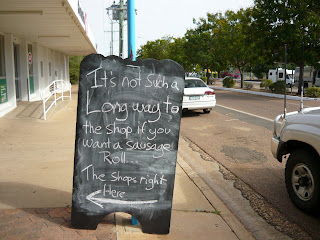 It's not such a
Long way to
the shop If you
want a sausage
Roll...
The shops right
Here